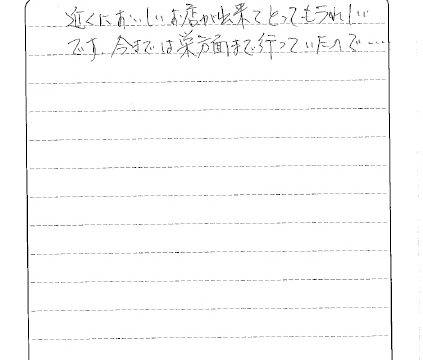 近くにおいしいお店が出来てとってもうれしい
です。今までは栄方面まで行っていたので…